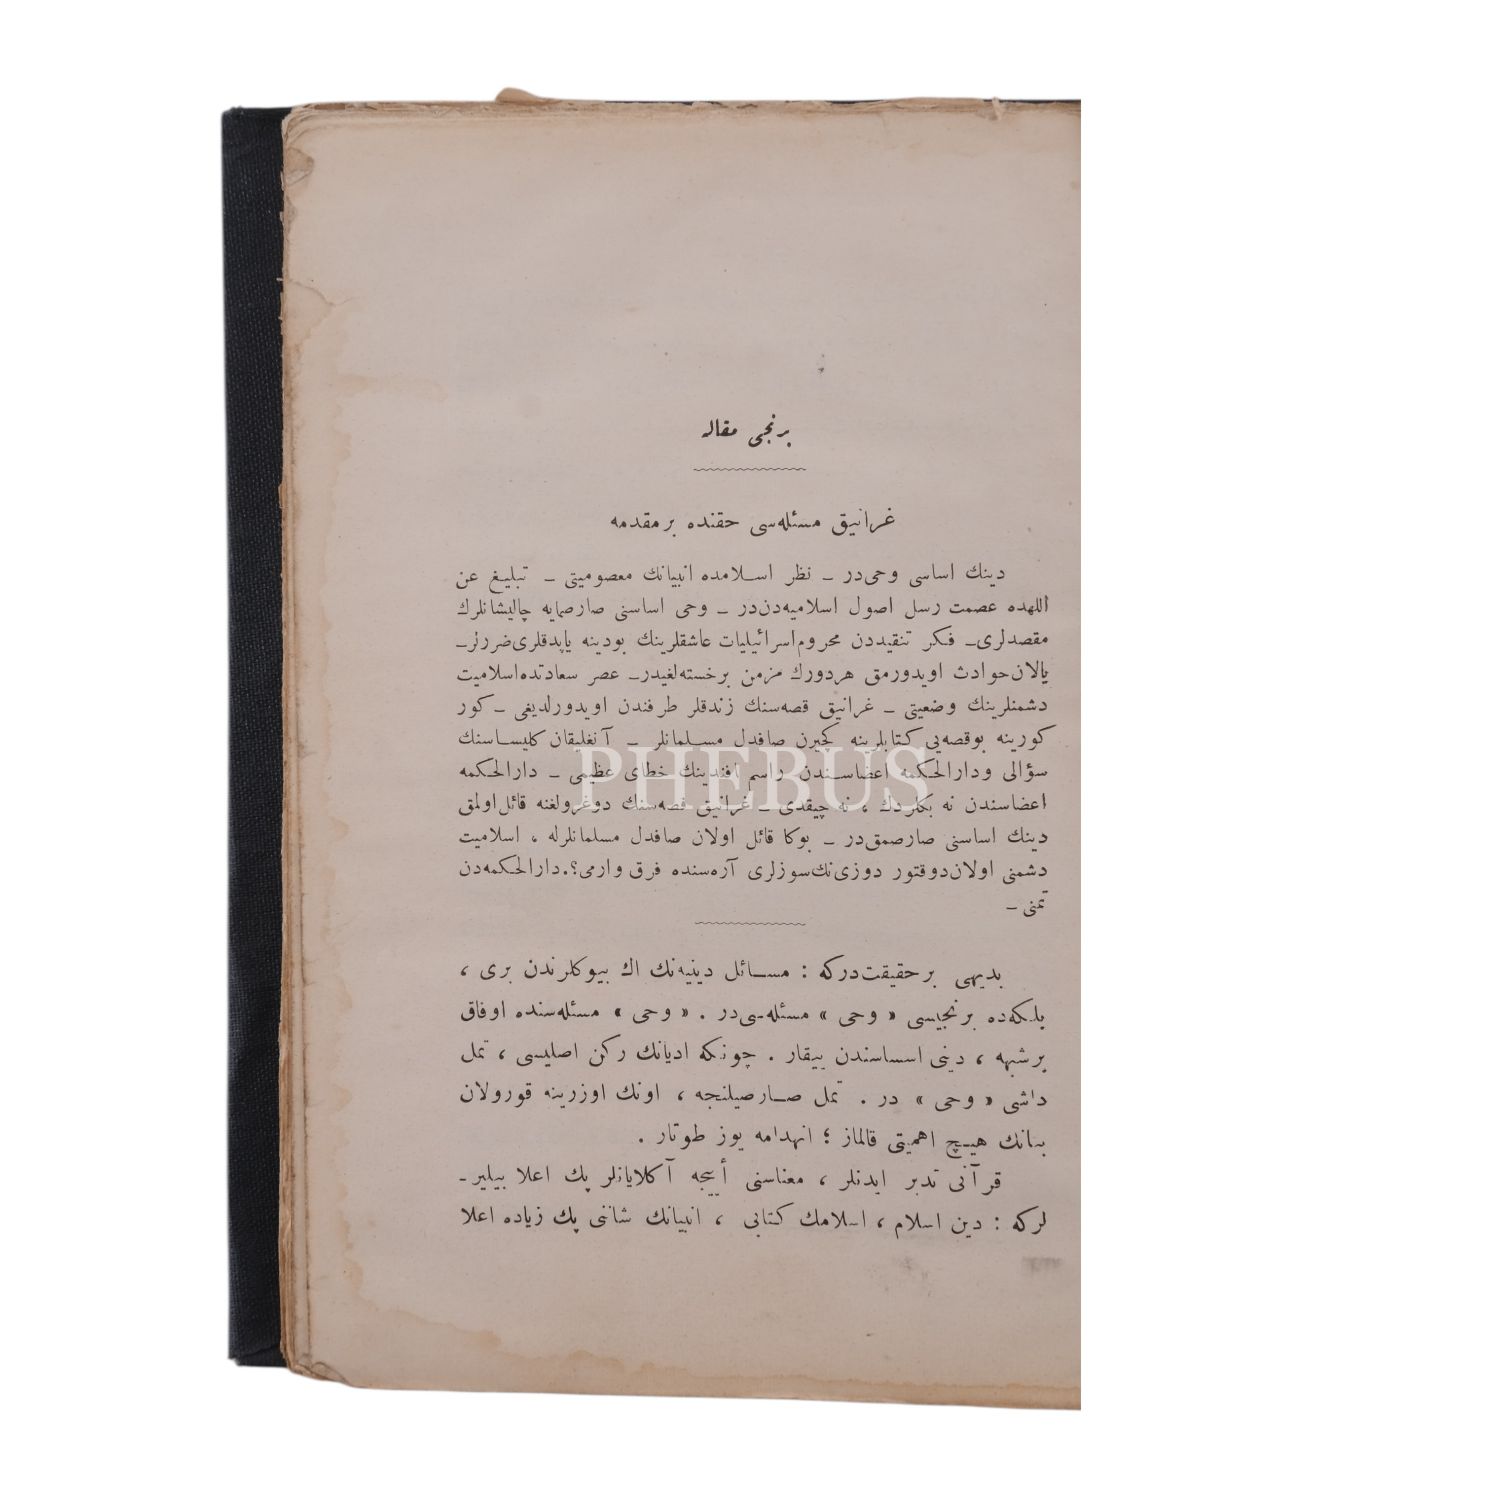 برنجی مقاله
غرانیق مسئله‌سی حقنده بر مقدمه
دینك اساسی وحی‌در ــ نظر اسـلامده انبیانك معصومیتی ــ تبلیـغ عن
اللهده عصمت رسل اصول اسلامیه‌دن‌در ــ وحی اساسنی صارصمایه چالیشانلرك
مقصدلری ــ فـكر تنقیددن محروم اسرائیلیات عاشقلرینك بودینه یاپدقلری ضررلر ــ
یالان حوادث اویدورمق هردورك مزمن برخسته‌لغیدر ــ عصر سعادتده اسلامیت
دشمنلرینك وضعیتی ــ غرانیق قصه‌سنك زندقلر طرفندن اویدورلدیغی ــ كور
كورینه بوقصه‌یی كـتابلرینه كچیرن صافدل مسـلمانلر ــ آنغلیقان كلیسـاسنك
سؤالی ودارالحكمه اعضاسـندن راسم افندینك خطای عظیمی ــ دارالحكمه
اعضاسندن نه بكلردك ، نه چیقدی ــ غرانیق قصه‌سنك دوغرولغنه قائل اولمق
دینك اساسنی صارصمق‌در ــ بوكا قائل اولان صافدل مسلمانلرله ، اسلامیت
دشمنی اولان دوقتور دوزی‌نك سوزلری آره‌سنده فرق وارمی؟. دارالحـكمه‌دن
تمنی ــ
بدیهی بر حقیقت‌دركه : مسـائل دینیه‌نك اك بیوكلرندن بری ،
بلـكه‌ده برنجیسی « وحی » مسئله‌سی‌در . « وحی » مسئله‌سنده اوفاق
برشبهه ، دینی اسـاسندن ییقار . چونكه ادیانك ركن اصلیسی ، تمل
داشی « وحی » در . تمل صـارصیلنجه ، اونك اوزرینه قورولان
بنانك هیـچ اهمیتی قالماز ؛ انهدامه یوز طوتار .
قرآنی تدبر ایدنلر ، معناسنی أییجه آكلایانلر پك اعلا بیلیرــ
لركه : دین اسلام ، اسلامك كـتابی ، انبیانك شاننی پك زیاده اعلا
PHEBUS